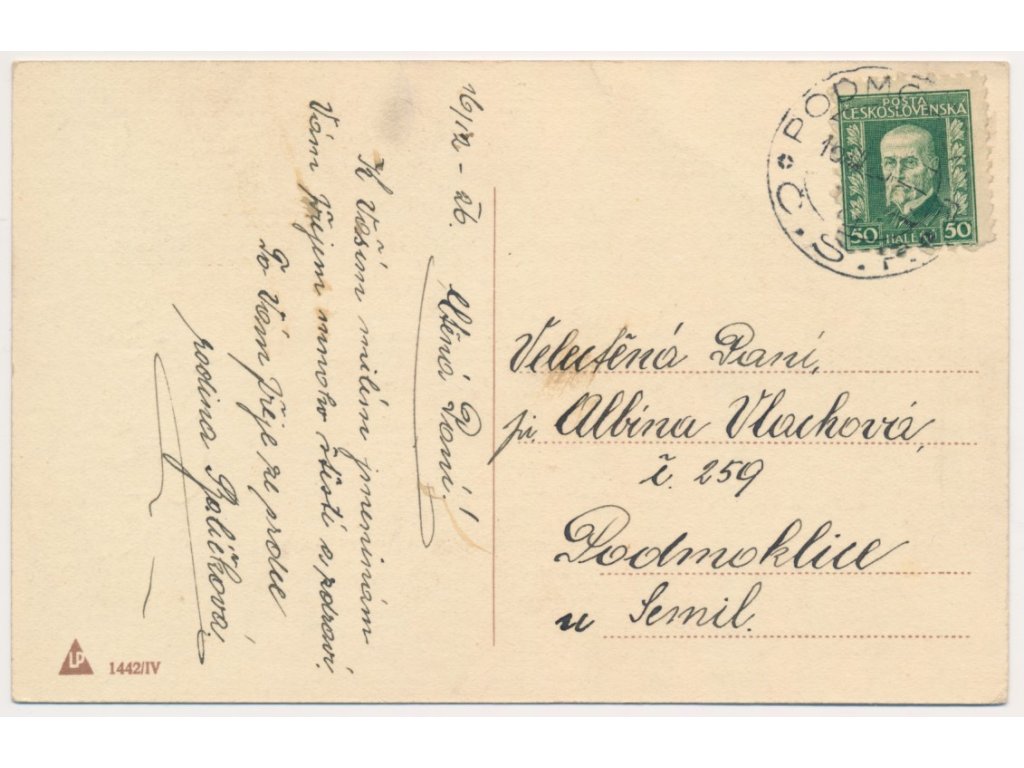 16/12 - 26.
Ctěná Paní!
K Vašim milím jmeninám
Vám přejem mnoho štěstí a zdraví.
To Vám přeje ze srdce
rodina Paličková
1442/IV
LP
PODMO
POŠTA
ČESKOSLOVENSKÁ
50 HALÉŘŮ 50
Velectěná Paní,
Albina Vlachová,
č. 259
Podmoklice
u Semil.